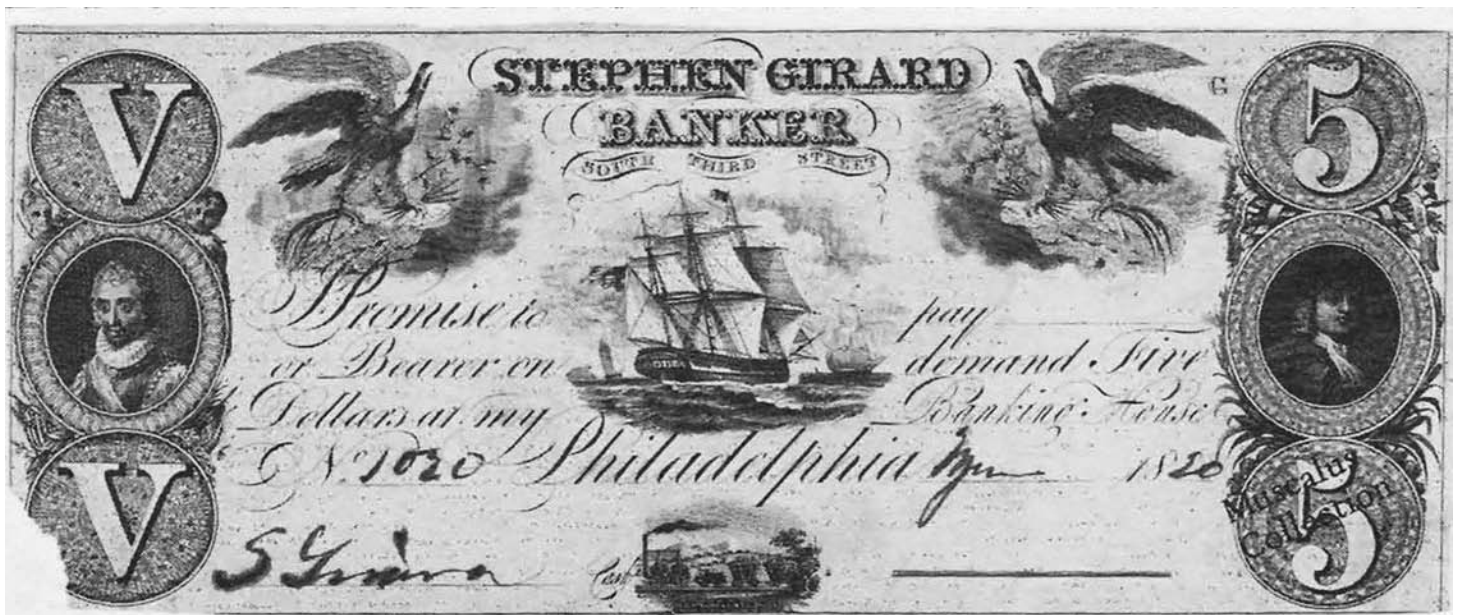 V
STEPHEN GIRARD
BANKER
SOUTH THIRD STREET
G
5
I Promise to pay
or Bearer on demand Five
Dollars at my Banking House
No. 1020 Philadelphia 1820
V
Muscalus
Collection
5
S Girard
Cash.